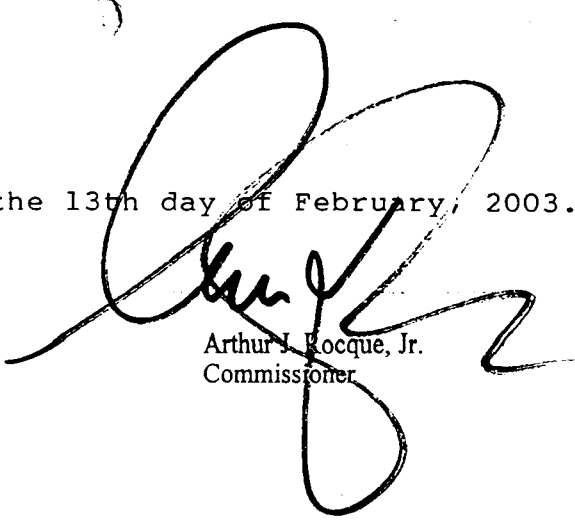 the 13th day of February, 2003.
Arthur J. Rocque, Jr.
Commissioner